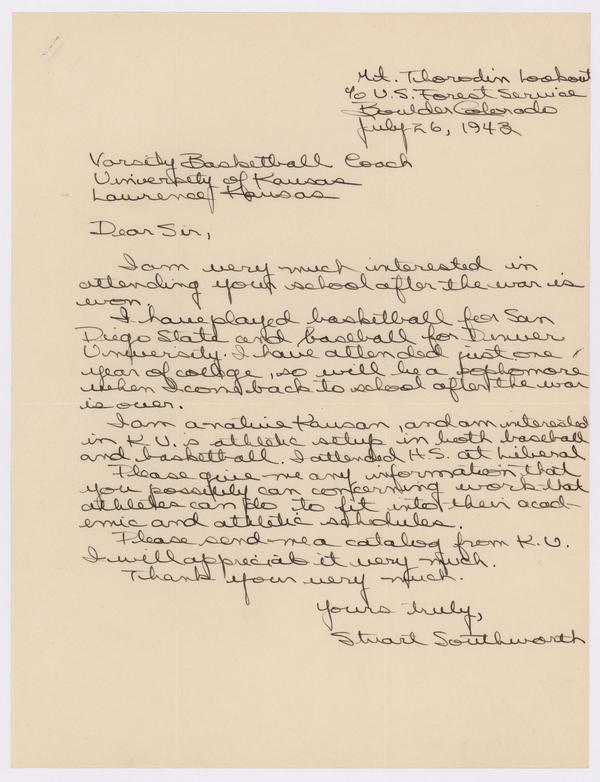 Mt. Thorodin Lookout
c/o U.S. Forest Service
Boulder Colorado
July 26, 1943
Varsity Basketball Coach
University of Kansas
Lawrence, Kansas
Dear Sir,
I am very much interested in
attending your school after the war is
won.
I have played basketball for San
Diego State and baseball for Denver
University. I have attended just one
year of college, so will be a sophomore
when I come back to school after the war
is over.
I am a native Kansan, and am interested
in K.U.'s athletic setup in both baseball
and basketball. I attended H.S. at Liberal
Please give me any information that
you possibly can concerning work that
athletes can do to fit into their acad-
emic and athletic schedules.
Please send me a catalog from K.U.
I will appreciate it very much.
Thank your very much.
Yours truly,
Stuart Southworth